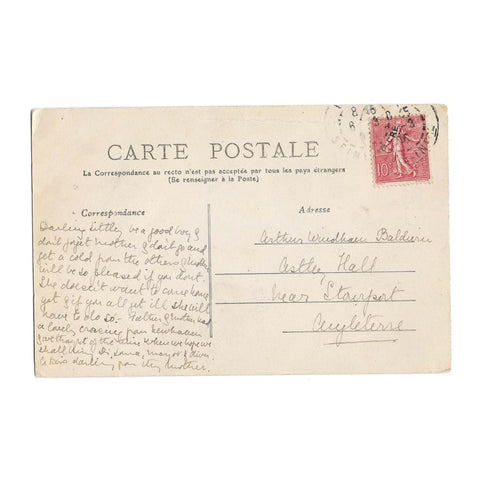 CARTE POSTALE
La Correspondance au recto n'est pas acceptée par tous les pays étrangers
(Se renseigner à la Poste)
Correspondance
Adresse
Darling little be a good boy &
don't forget Mother & don't go and
get a cold from the others & Mother
will be so pleased if you don't.
She doesn't want to come home
yet & if you all get ill she will
have to do so. Father & Mother had
a lovely crossing from Newhaven
& we thought of the time when we hope we
shall bring Di, Lorna, Margot &
& Kiss darling from thy Mother.
Arthur Windham Baldwin
Astley Hall
near Stourport
Angleterre
10